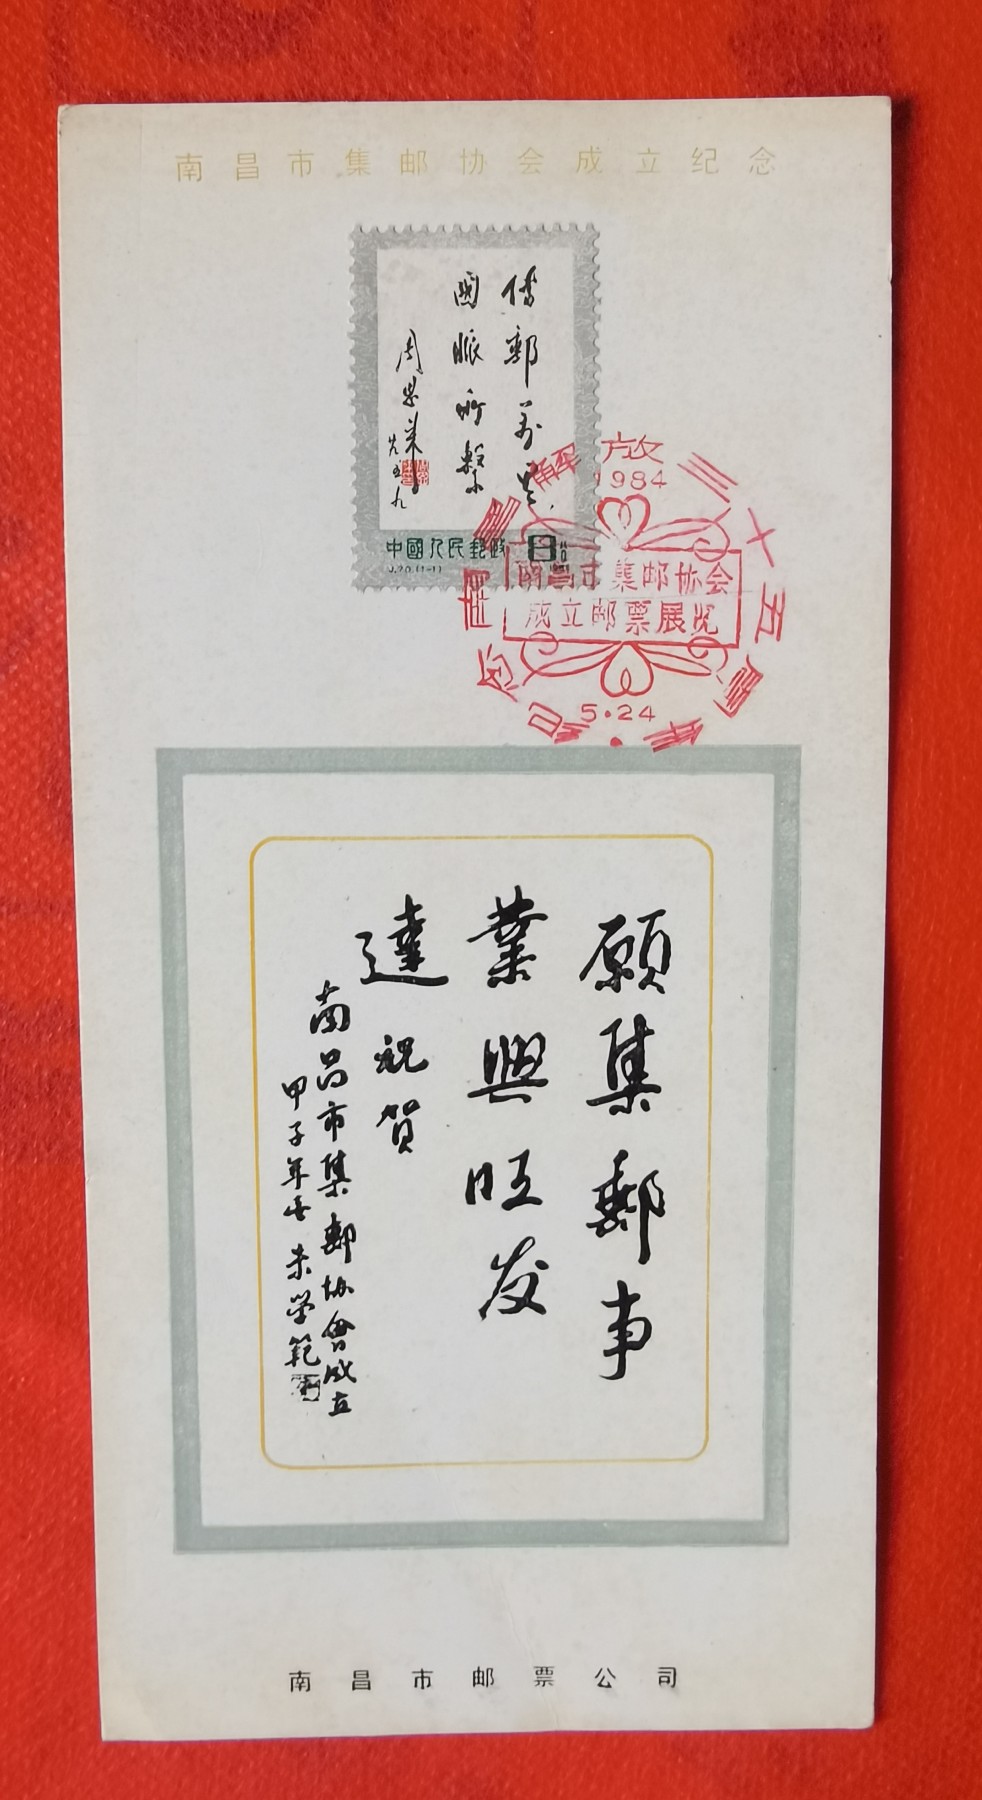 南昌市集邮协会成立纪念
传邮万里
國脈所繫
周恩来
中國人民邮政
8分
J.70.(1-1)
1981
南昌解放三十五周年纪念
1984
南昌市集邮协会
成立邮票展览
5·24
願集郵事
業興旺发
達 祝賀
南昌市集郵协會成立
甲子年 朱学範
南昌市邮票公司